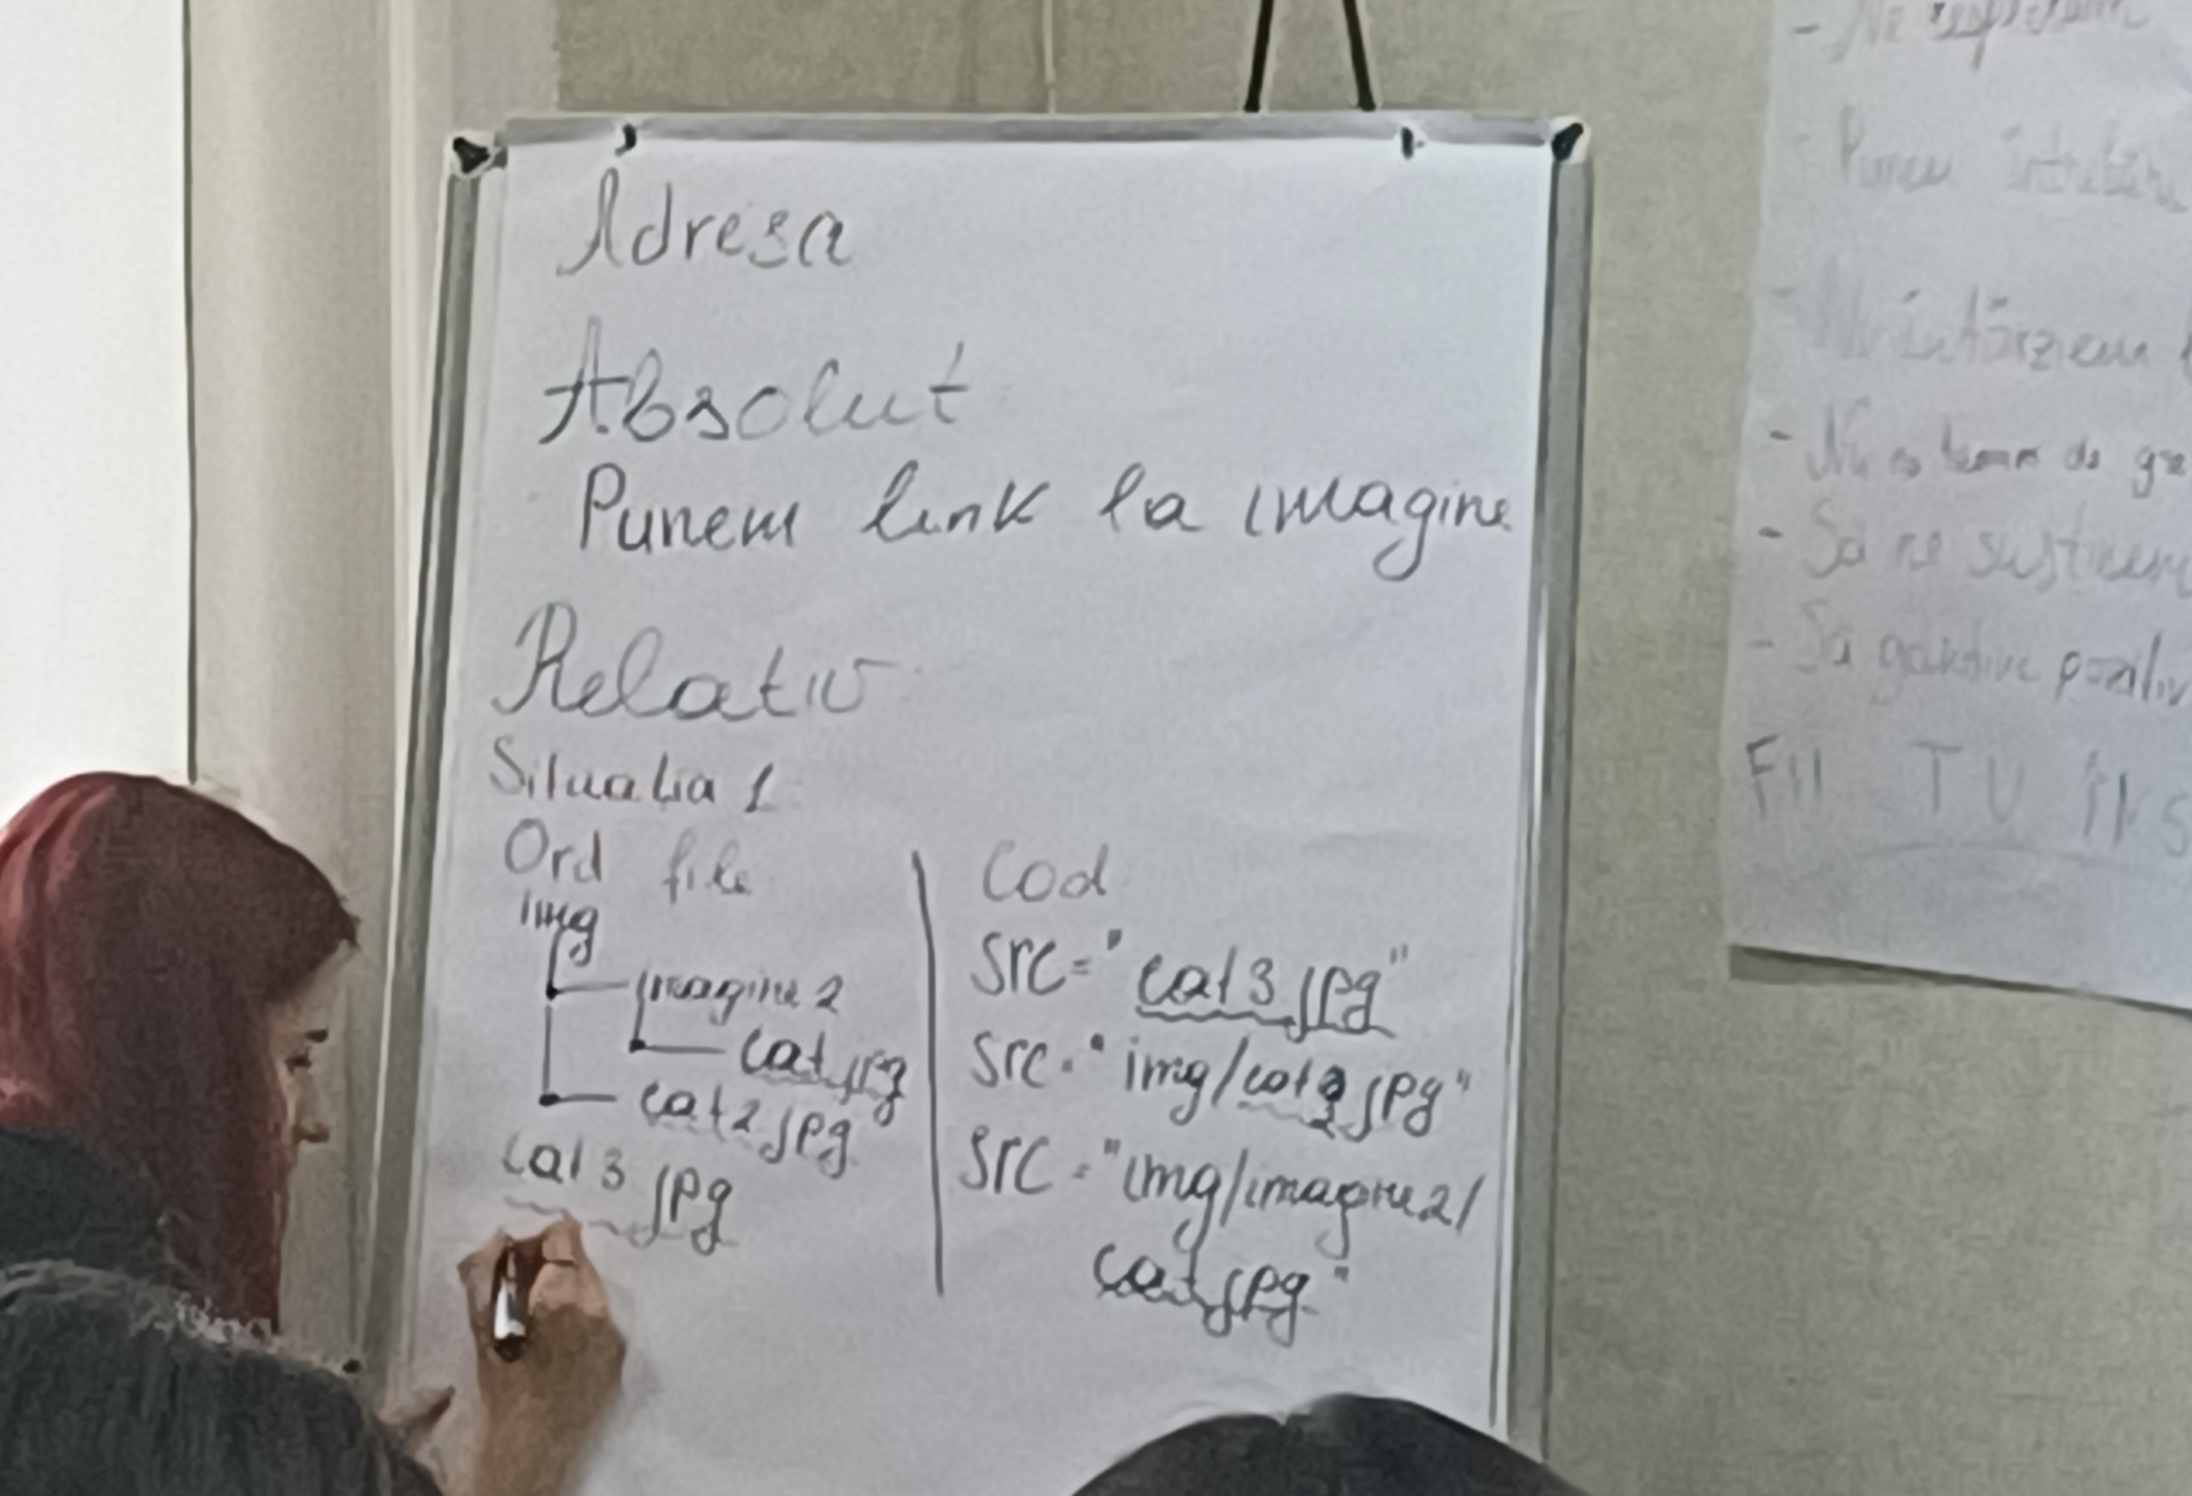 Adresa
Absolut
Punem link la imagine
Relativ
Situatia 1
Ord file
img
imagine2
cat.jpg
cat2.jpg
cat3.jpg
Cod
src="cat3.jpg"
src="img/cat2.jpg"
src="img/imagine2/
cat.jpg"
- Ne respectăm
Punem întrebări
- Nu întârziem
- Nu ne temem de gre
- Să ne susținem
- Să gândim pozitiv
FII TU ÎNS